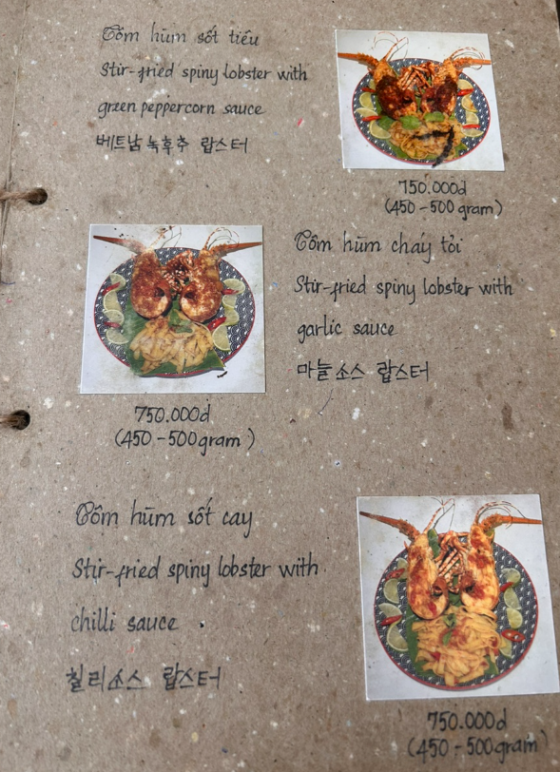 Tôm hùm sốt tiêu
Stir-fried spiny lobster with
green peppercorn sauce
베트남 녹후추 랍스터
750.000đ
(450-500 gram)
Tôm hùm cháy tỏi
Stir-fried spiny lobster with
garlic sauce
마늘소스 랍스터
750.000đ
(450-500gram)
Tôm hùm sốt cay
Stir-fried spiny lobster with
chilli sauce
칠리소스 랍스터
750.000đ
(450-500gram)